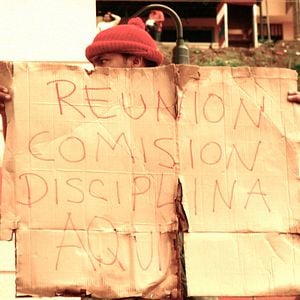 REUNION
COMISION
DISCIPLINA
AQUI